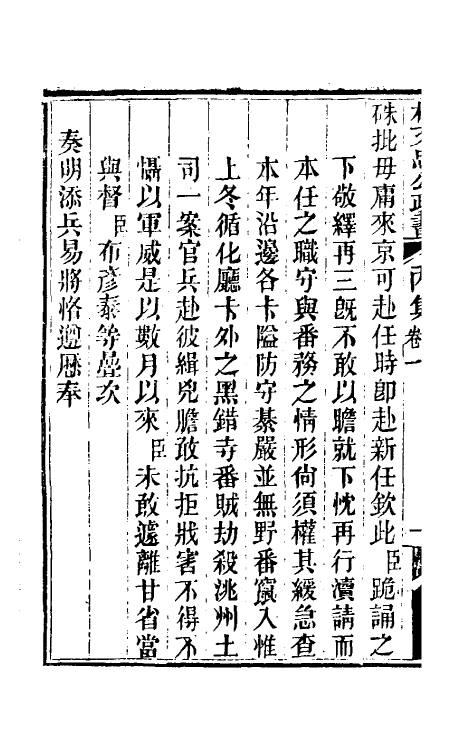 林文忠公政書 丙集 卷一 一
硃批毋庸來京可赴任時卽赴新任欽此臣跪誦之
下敬繹再三旣不敢以瞻就下忱再行瀆請而
本任之職守與番務之情形尙須權其緩急查
本年沿邊各卡隘防守綦嚴並無野番竄入惟
上冬循化廳卡外之黑錯寺番賊劫殺洮州土
司一案官兵赴彼緝兇膽敢抗拒戕害不得不
懾以軍威是以數月以來臣未敢遽離甘省當
與督臣布彥泰等疊次
奏明添兵易將恪遵歷奉